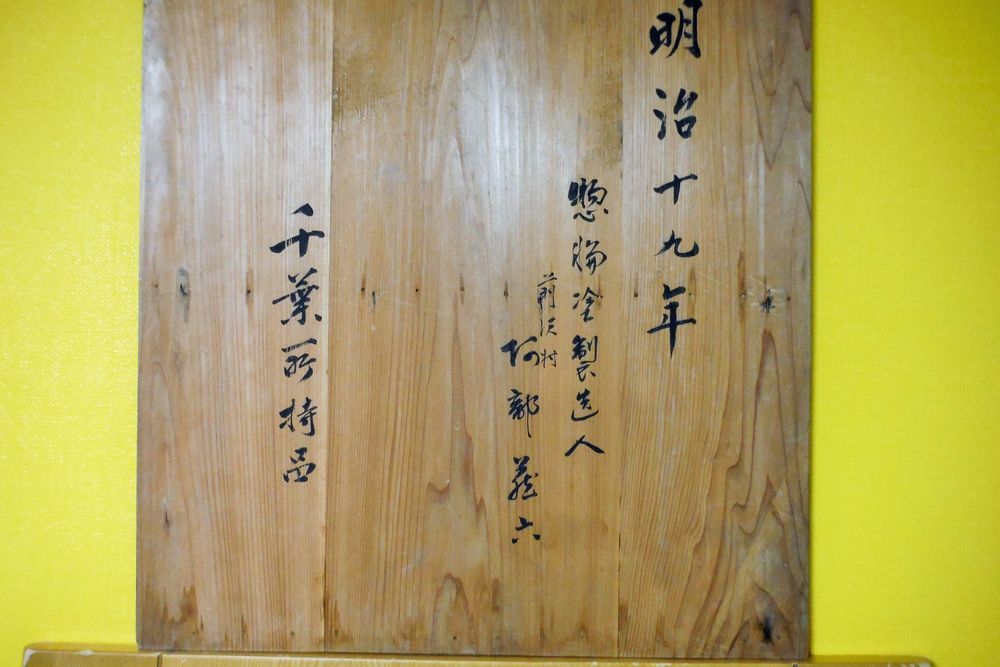 明治十九年
惣膳塗製造人
前沢村
阿部蔵六
千葉所持品